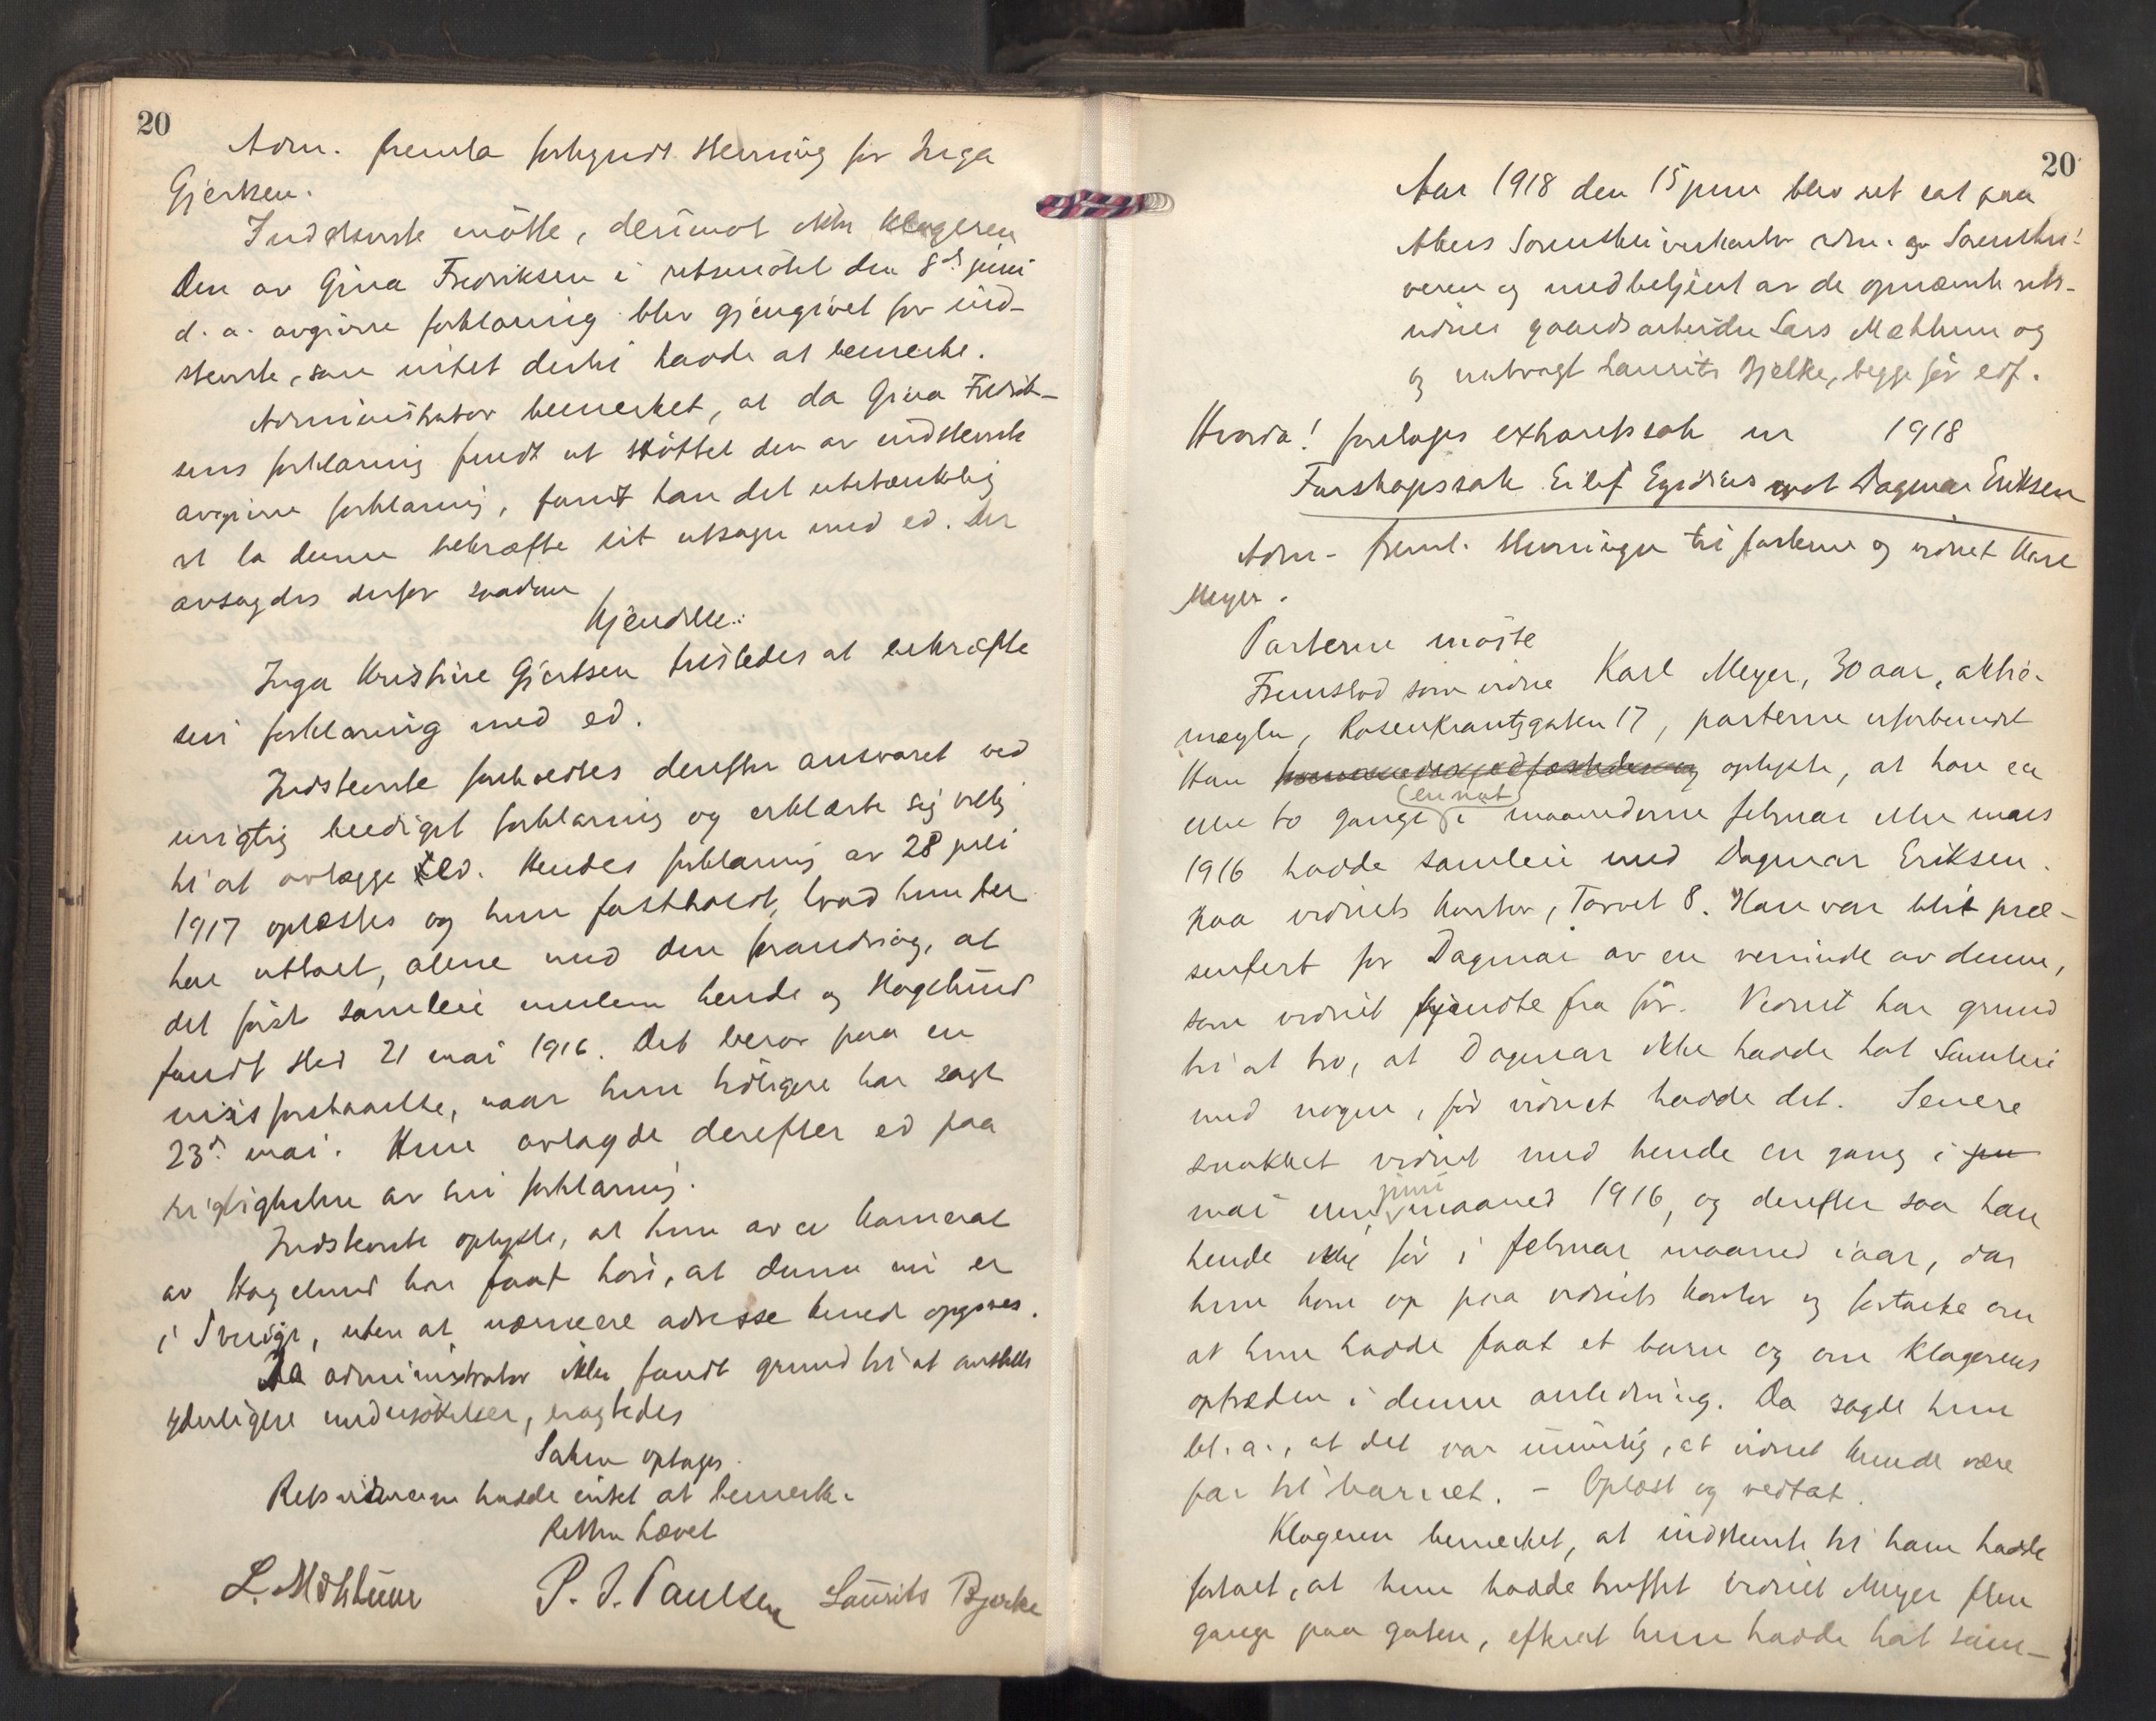 20
Adm. fremla forkyndt stevning for Inga
Gjertsen.
Indstevnte møtte, derimot ikke klageren
Den av Gina Fredriksen i retsmøtet den 8de juni
d. a. avgivne forklaring blev gjengivet for ind-
stevnte, som intet dertil hadde at bemerke.
Administrator bemerket, at da Gina Fredrik-
sens forklaring fuldt ut støttet den av indstevnte
avgivne forklaring, fandt han det ubetænkelig
at la denne bekræfte sit utsagn med ed. Der
avsagdes derfor saadan
Kjendelse:
Inga Kristine Gjertsen tilstedes at bekræfte
sin forklaring med ed.
Indstevnte forholdtes derefter ansvaret ved
urigtig beediget forklaring og erklærte sig villig
til at avlægge ed. Hendes forklaring av 28 juli
1917 oplæstes og hun fastholdt, hvad hun der
har uttalt, alene med den forandring, at
det først samleie mellem hende og Hagelund
fandt sted 21 mai 1916. Det beror paa en
misforstaaelse, naar hun tidligere har sagt
23de mai. Hun avlagde derefter ed paa
rigtigheten av sin forklaring.
Indstevnte oplyste, at hun av en kamerat
av Hagelund har faat høre, at denne nu er
i Sverige, uten at nærmere adresse kunde opgives.
Da administrator ikke fandt grund til at anstille
yderligere undersøkelser, eragtedes
Saken optages.
Retsvidnerne hadde intet at bemerke.
Retten hævet
L. Mæhlum P. I. Paulsen Laurits Bjerke
20
Aar 1918 den 15 juni blev ret sat paa
Akers Sorenskriverkontor adm. av Sorenskri-
veren og med betjent av de opnævnte rets-
vidner gaardsarbeider Lars Mæhlum og
og natvagt Laurits Bjelke, begge før edf.
Hvorda! foretages extraretssak nr 1918
Farskapssak Eilif Egidius mot Dagmar Eriksen
Adm. freml. stevninger til parterne og vidnet Karl
Meyer.
Parterne møtte
Fremstod som vidne Karl Meyer, 30 aar, aktie-
mægler, Rosenkrantzgaten 17, parterne uforbundet
Han oplyste, at han en
eller to gange (en nat) i maanederne februar eller mars
1916 hadde samleie med Dagmar Eriksen
paa vidnets kontor, Torvet 8. Han var blit præ-
sentert for Dagmar av en veninde av denne,
som vidnet kjendte fra før. Vidnet har grund
til at tro, at Dagmar ikke hadde hat samleie
med nogen, før vidnet hadde det. Senere
snakket vidnet med hende en gang i jun
mai eller juni maaned 1916, og derefter saa han
hende ikke før i februar maaned iaar, da
hun kom op paa vidnets kontor og fortalte om
at hun hadde faat et barn og om klagerens
optræden i denne anledning. Da sagde hun
bl. a., at det var umulig, at vidnet kunde være
far til barnet. - Oplæst og vedtat.
Klageren bemerket, at indstevnte til ham hadde
fortalt, at hun hadde truffet vidnet Meyer flere
gange paa gaten, efterat hun hadde hat sam-